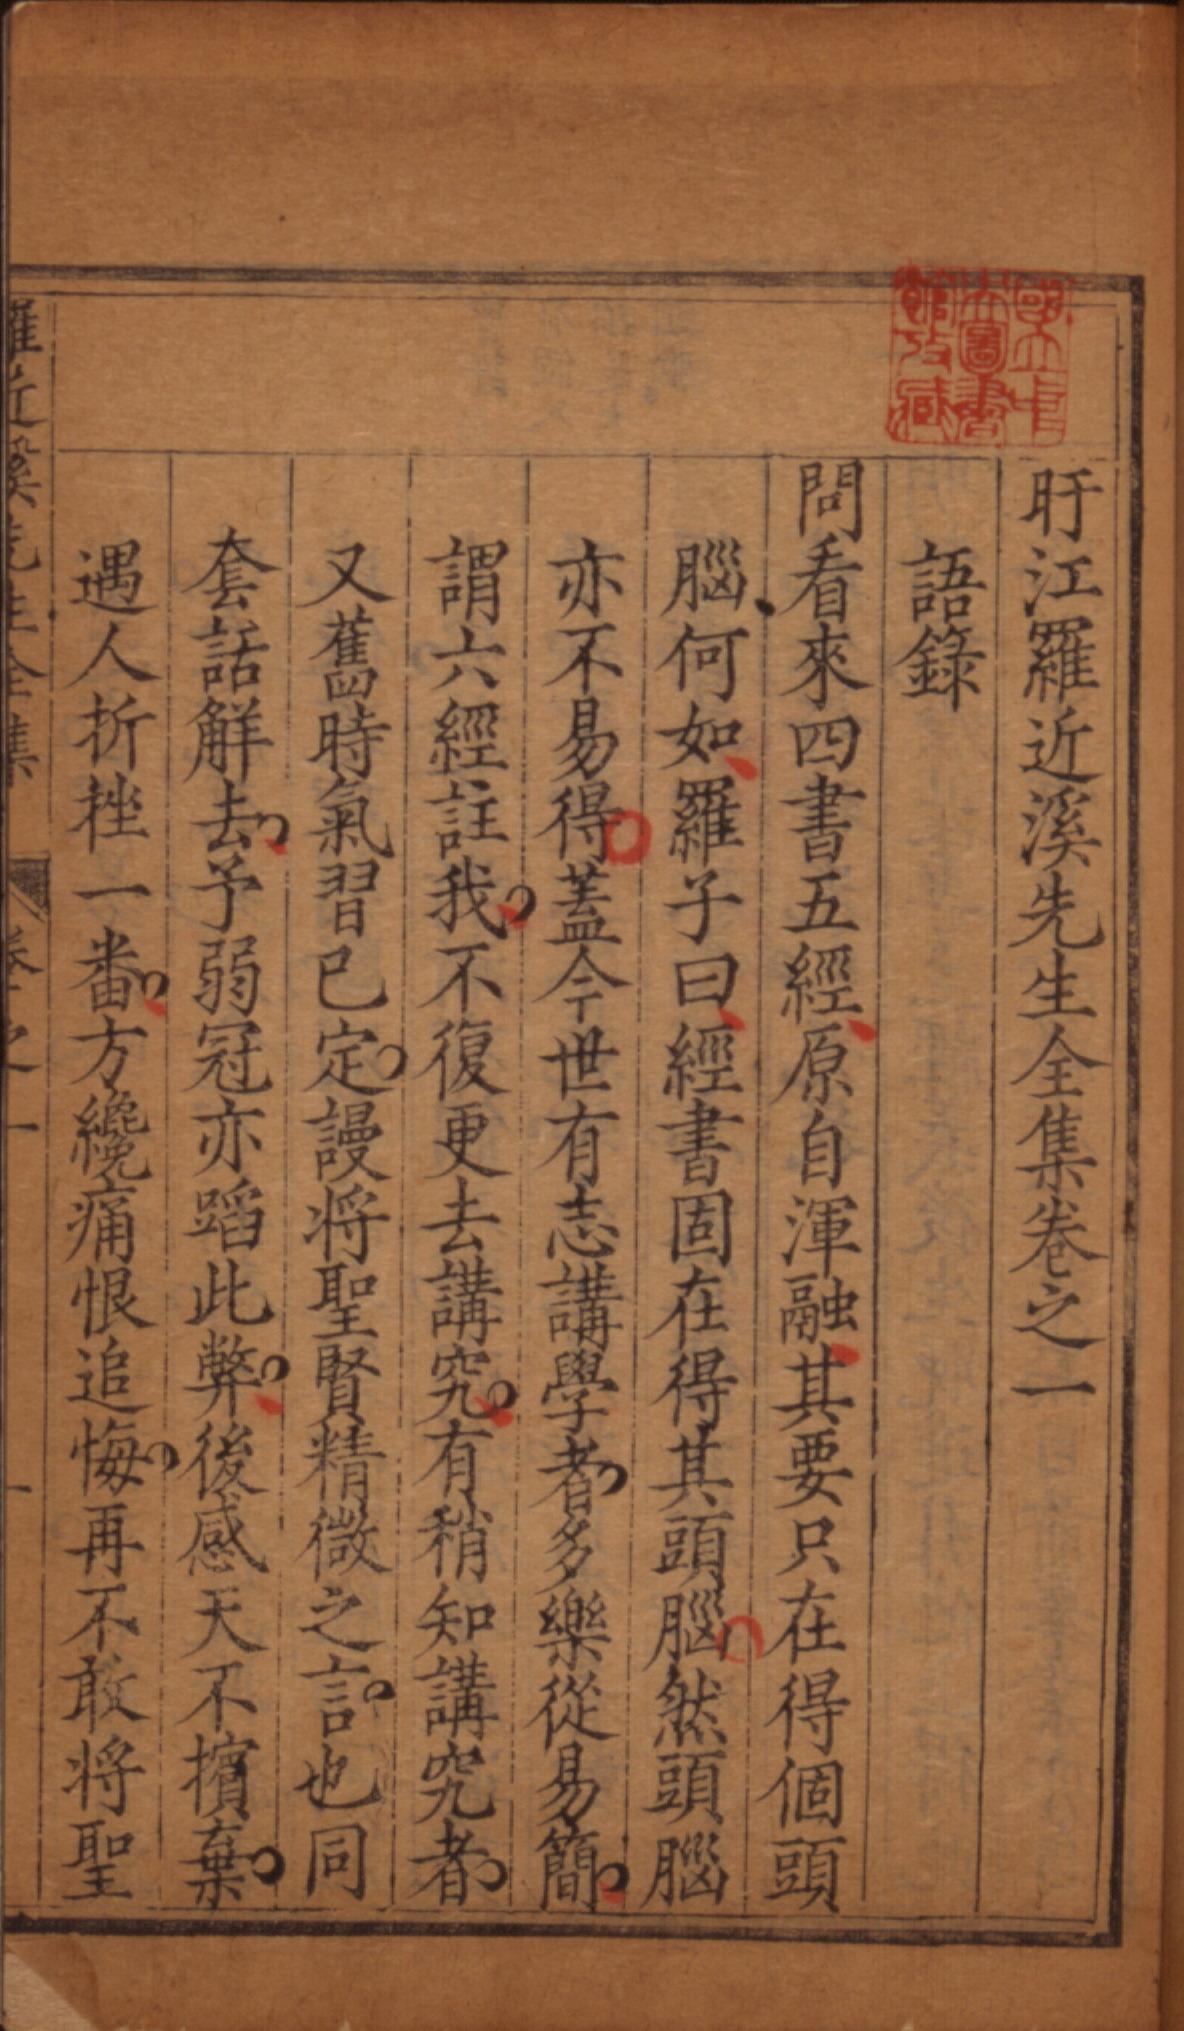 國立中
央圖書
館收藏
盱江羅近溪先生全集卷之一
語錄
問看來四書五經原自渾融其要只在得個頭
腦何如羅子曰經書固在得其頭腦然頭腦
亦不易得蓋今世有志講學者多樂從易簡
謂六經註我不復更去講究有稍知講究者
又舊時氣習已定謾将聖賢精微之言也同
套話解去予弱冠亦蹈此弊後感天不擯棄
遇人折挫一番方纔痛恨追悔再不敢将聖
羅近溪先生全集 卷之一 一